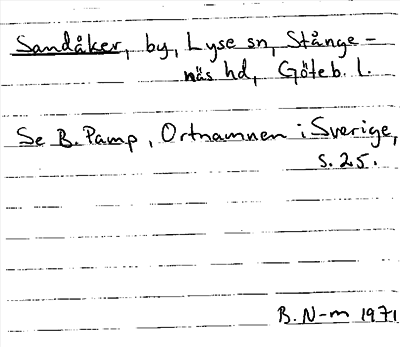 Sandåker, by, Lyse sn, Stånge-
näs hd, Göteb. l.
Se B. Pamp, Ortnamnen i Sverige,
s. 25.
B. N-m 1971